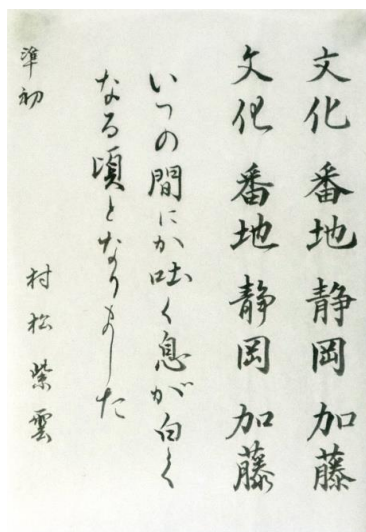 文化 番地 静岡 加藤
文化 番地 静岡 加藤
いつの間にか吐く息が白く
なる頃となりました
準初 村松紫雲